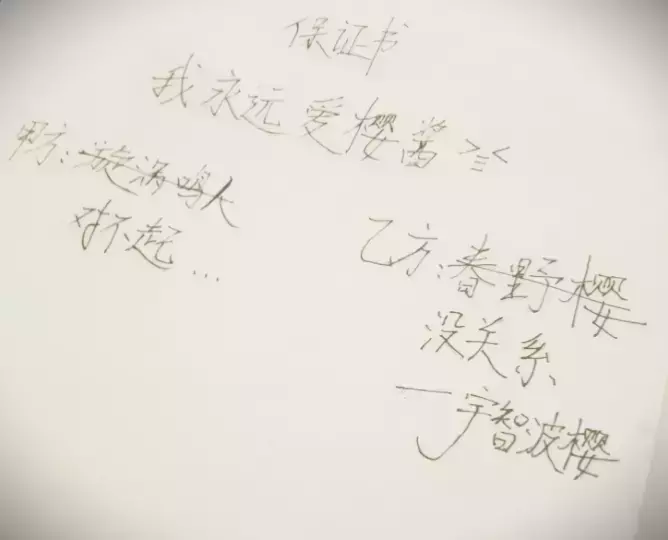 保证书
我永远爱樱酱 >三<
甲方:漩涡鸣人
对不起...
乙方:春野樱
没关系、
一宇智波樱